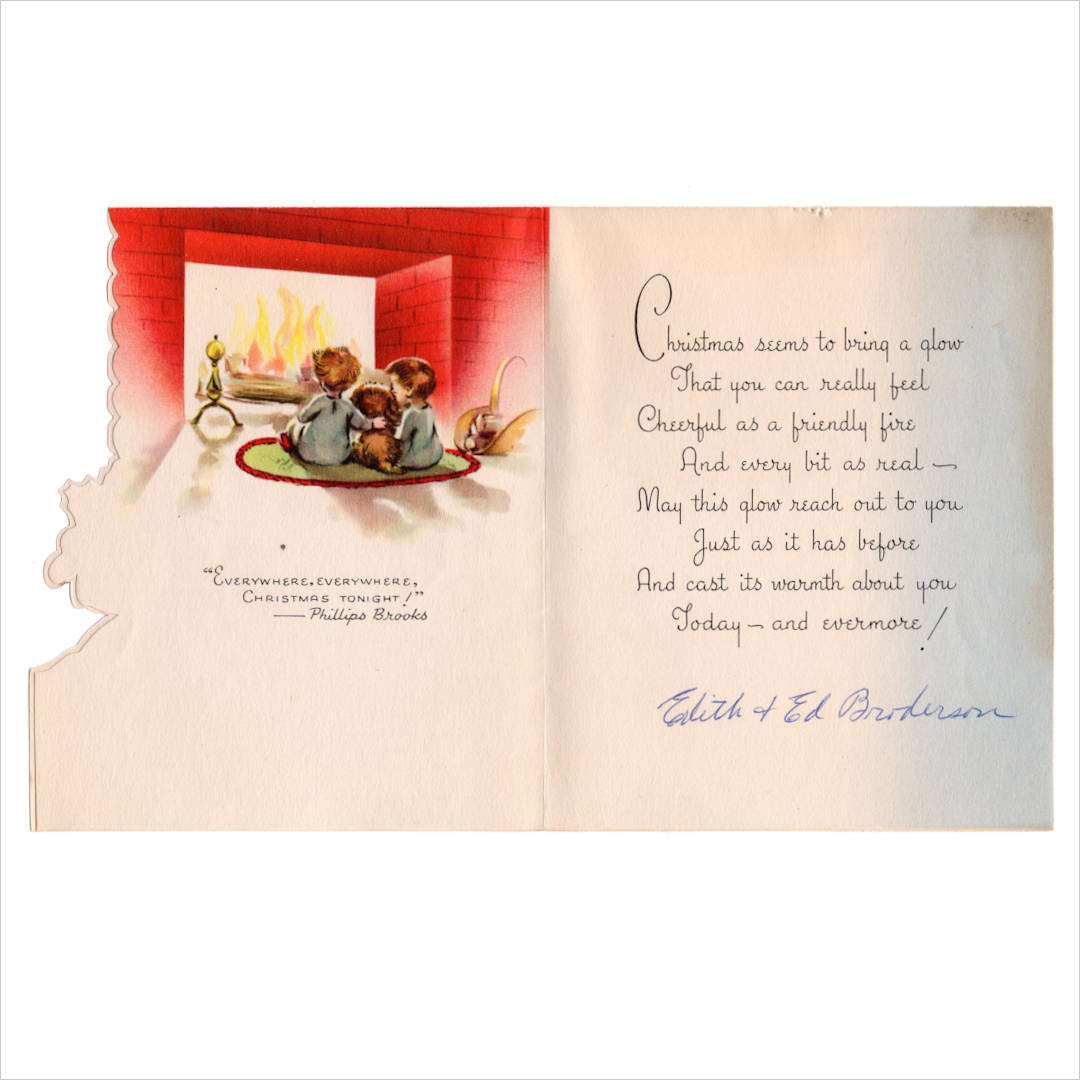 "Everywhere, everywhere,
Christmas tonight!"
— Phillips Brooks
Christmas seems to bring a glow
That you can really feel
Cheerful as a friendly fire
And every bit as real —
May this glow reach out to you
Just as it has before
And cast its warmth about you
Today — and evermore!
Edith + Ed Broderson